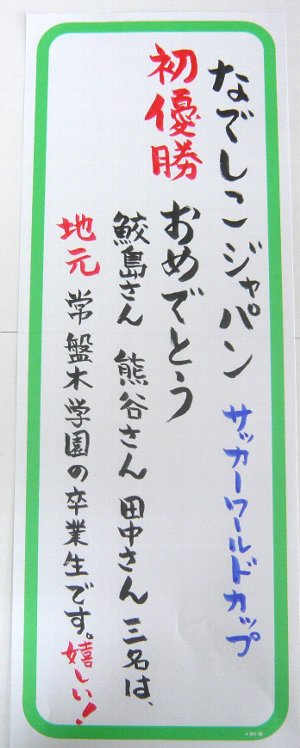 なでしこジャパン サッカーワールドカップ
初優勝 おめでとう
鮫島さん 熊谷さん 田中さん 三名は、
地元 常盤木学園の卒業生です。嬉しい！